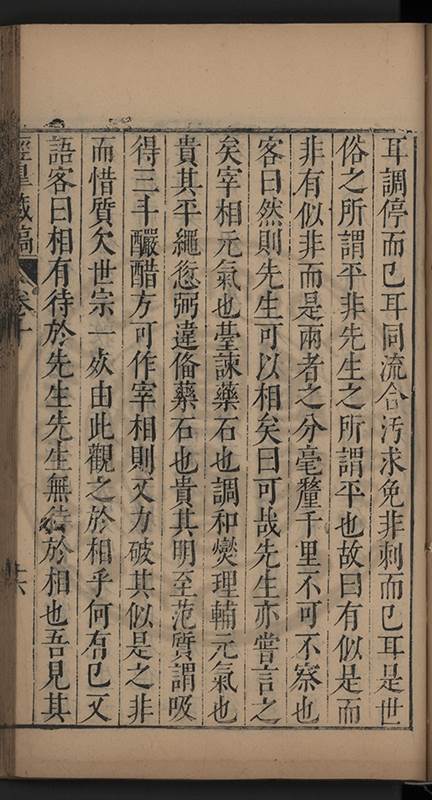 耳調停而已耳同流合汚求免非刺而已耳是世
俗之所謂平非先生之所謂平也故曰有似是而
非有似非而是兩者之分毫釐千里不可不察也
客曰然則先生可以相矣曰可哉先生亦嘗言之
矣宰相元氣也臺諫藥石也調和爕理輔元氣也
貴其平繩愆弼違偹藥石也貴其明至范質謂吸
得三斗釅醋方可作宰相則又力破其似是之非
而惜質欠世宗一死由此觀之於相乎何有已又
語客曰相有待於先生先生無待於相也吾見其
涇臯藏稿 卷十